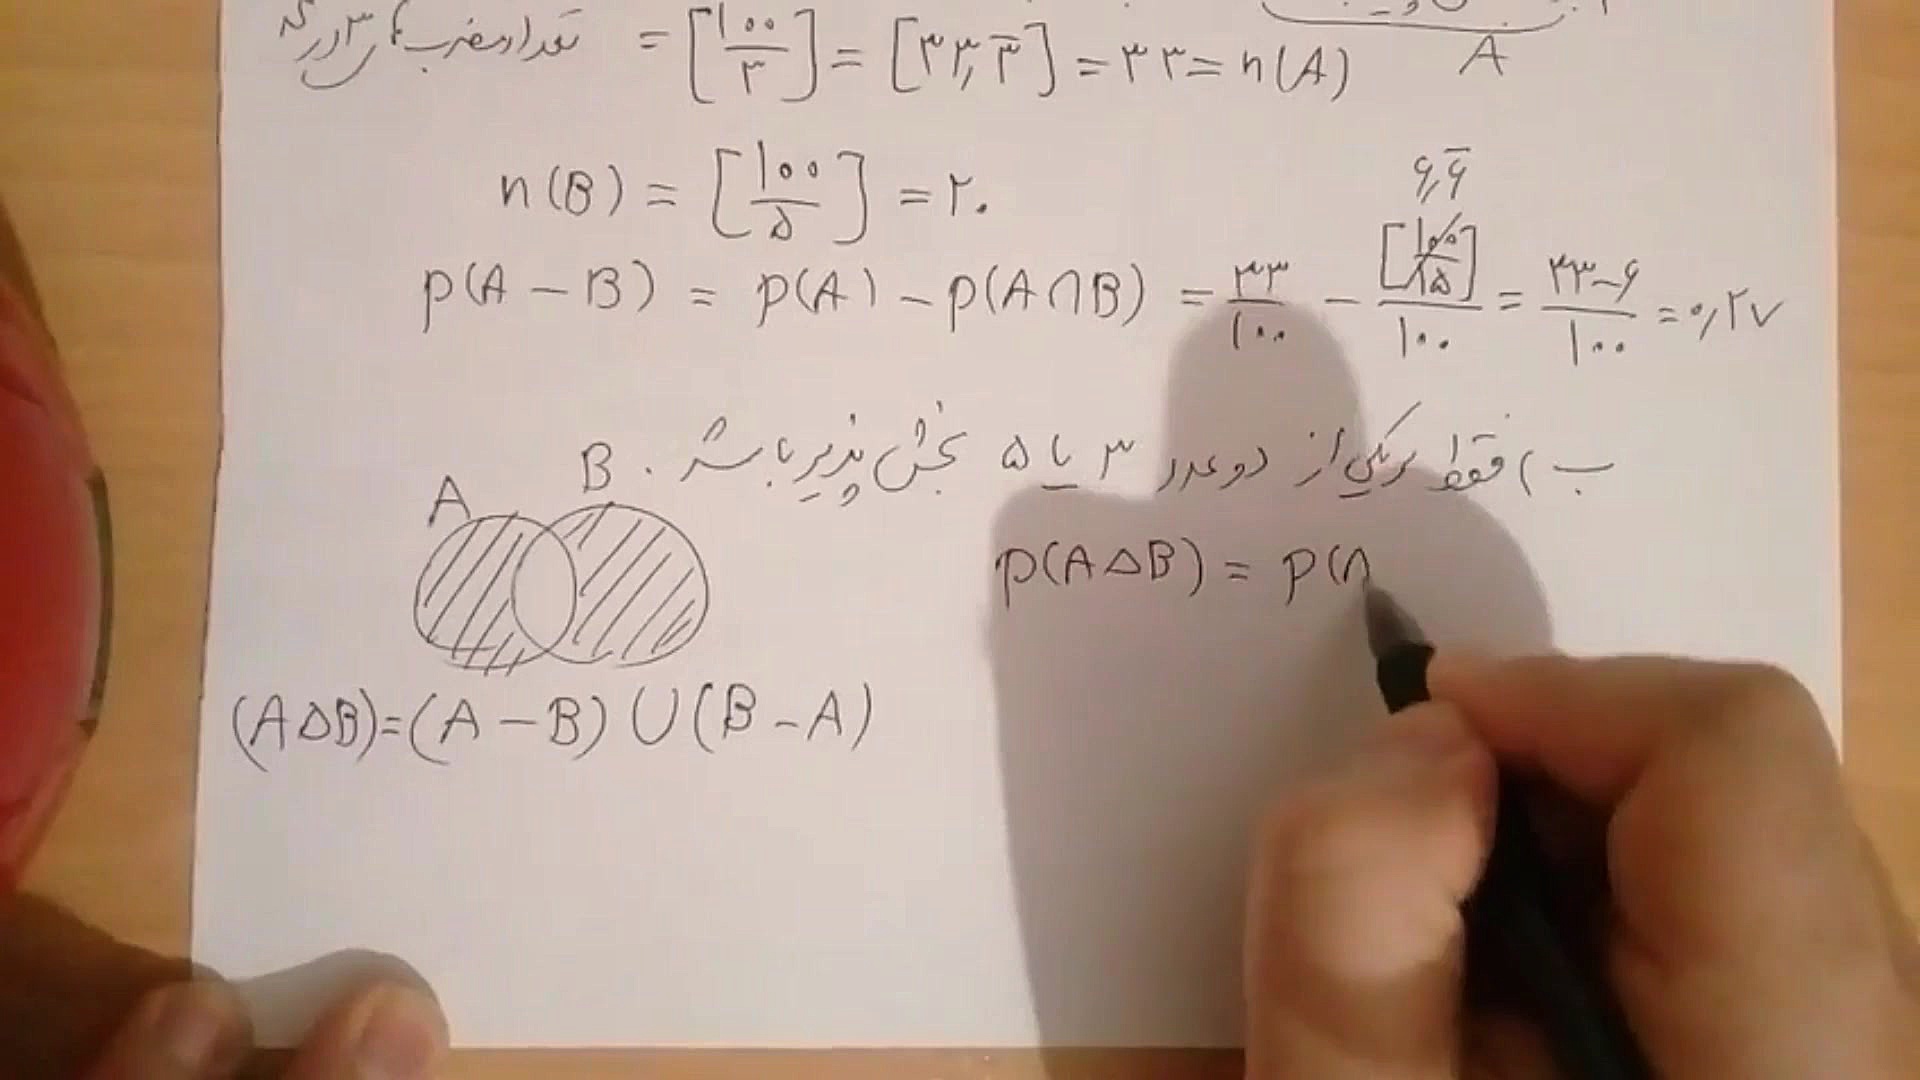 تعداد مضرب های ۳ = [۱۰۰/۳] = [۳۳٫۳̅] = ۳۳ = n(A)
A
n(B) = [۱۰۰/۵] = ۲۰
۶٫۶̅
p(A − B) = p(A) − p(A∩B) = ۳۳/۱۰۰ − [۱۰۰/۱۵]/۱۰۰ = ۳۳−۶/۱۰۰ = ۰٫۲۷
ب) فقط بر یکی از دو عدد ۳ یا ۵ بخش پذیر باشد.
A B
p(A△B) = p(A
(A△B)=(A − B) ∪ (B − A)